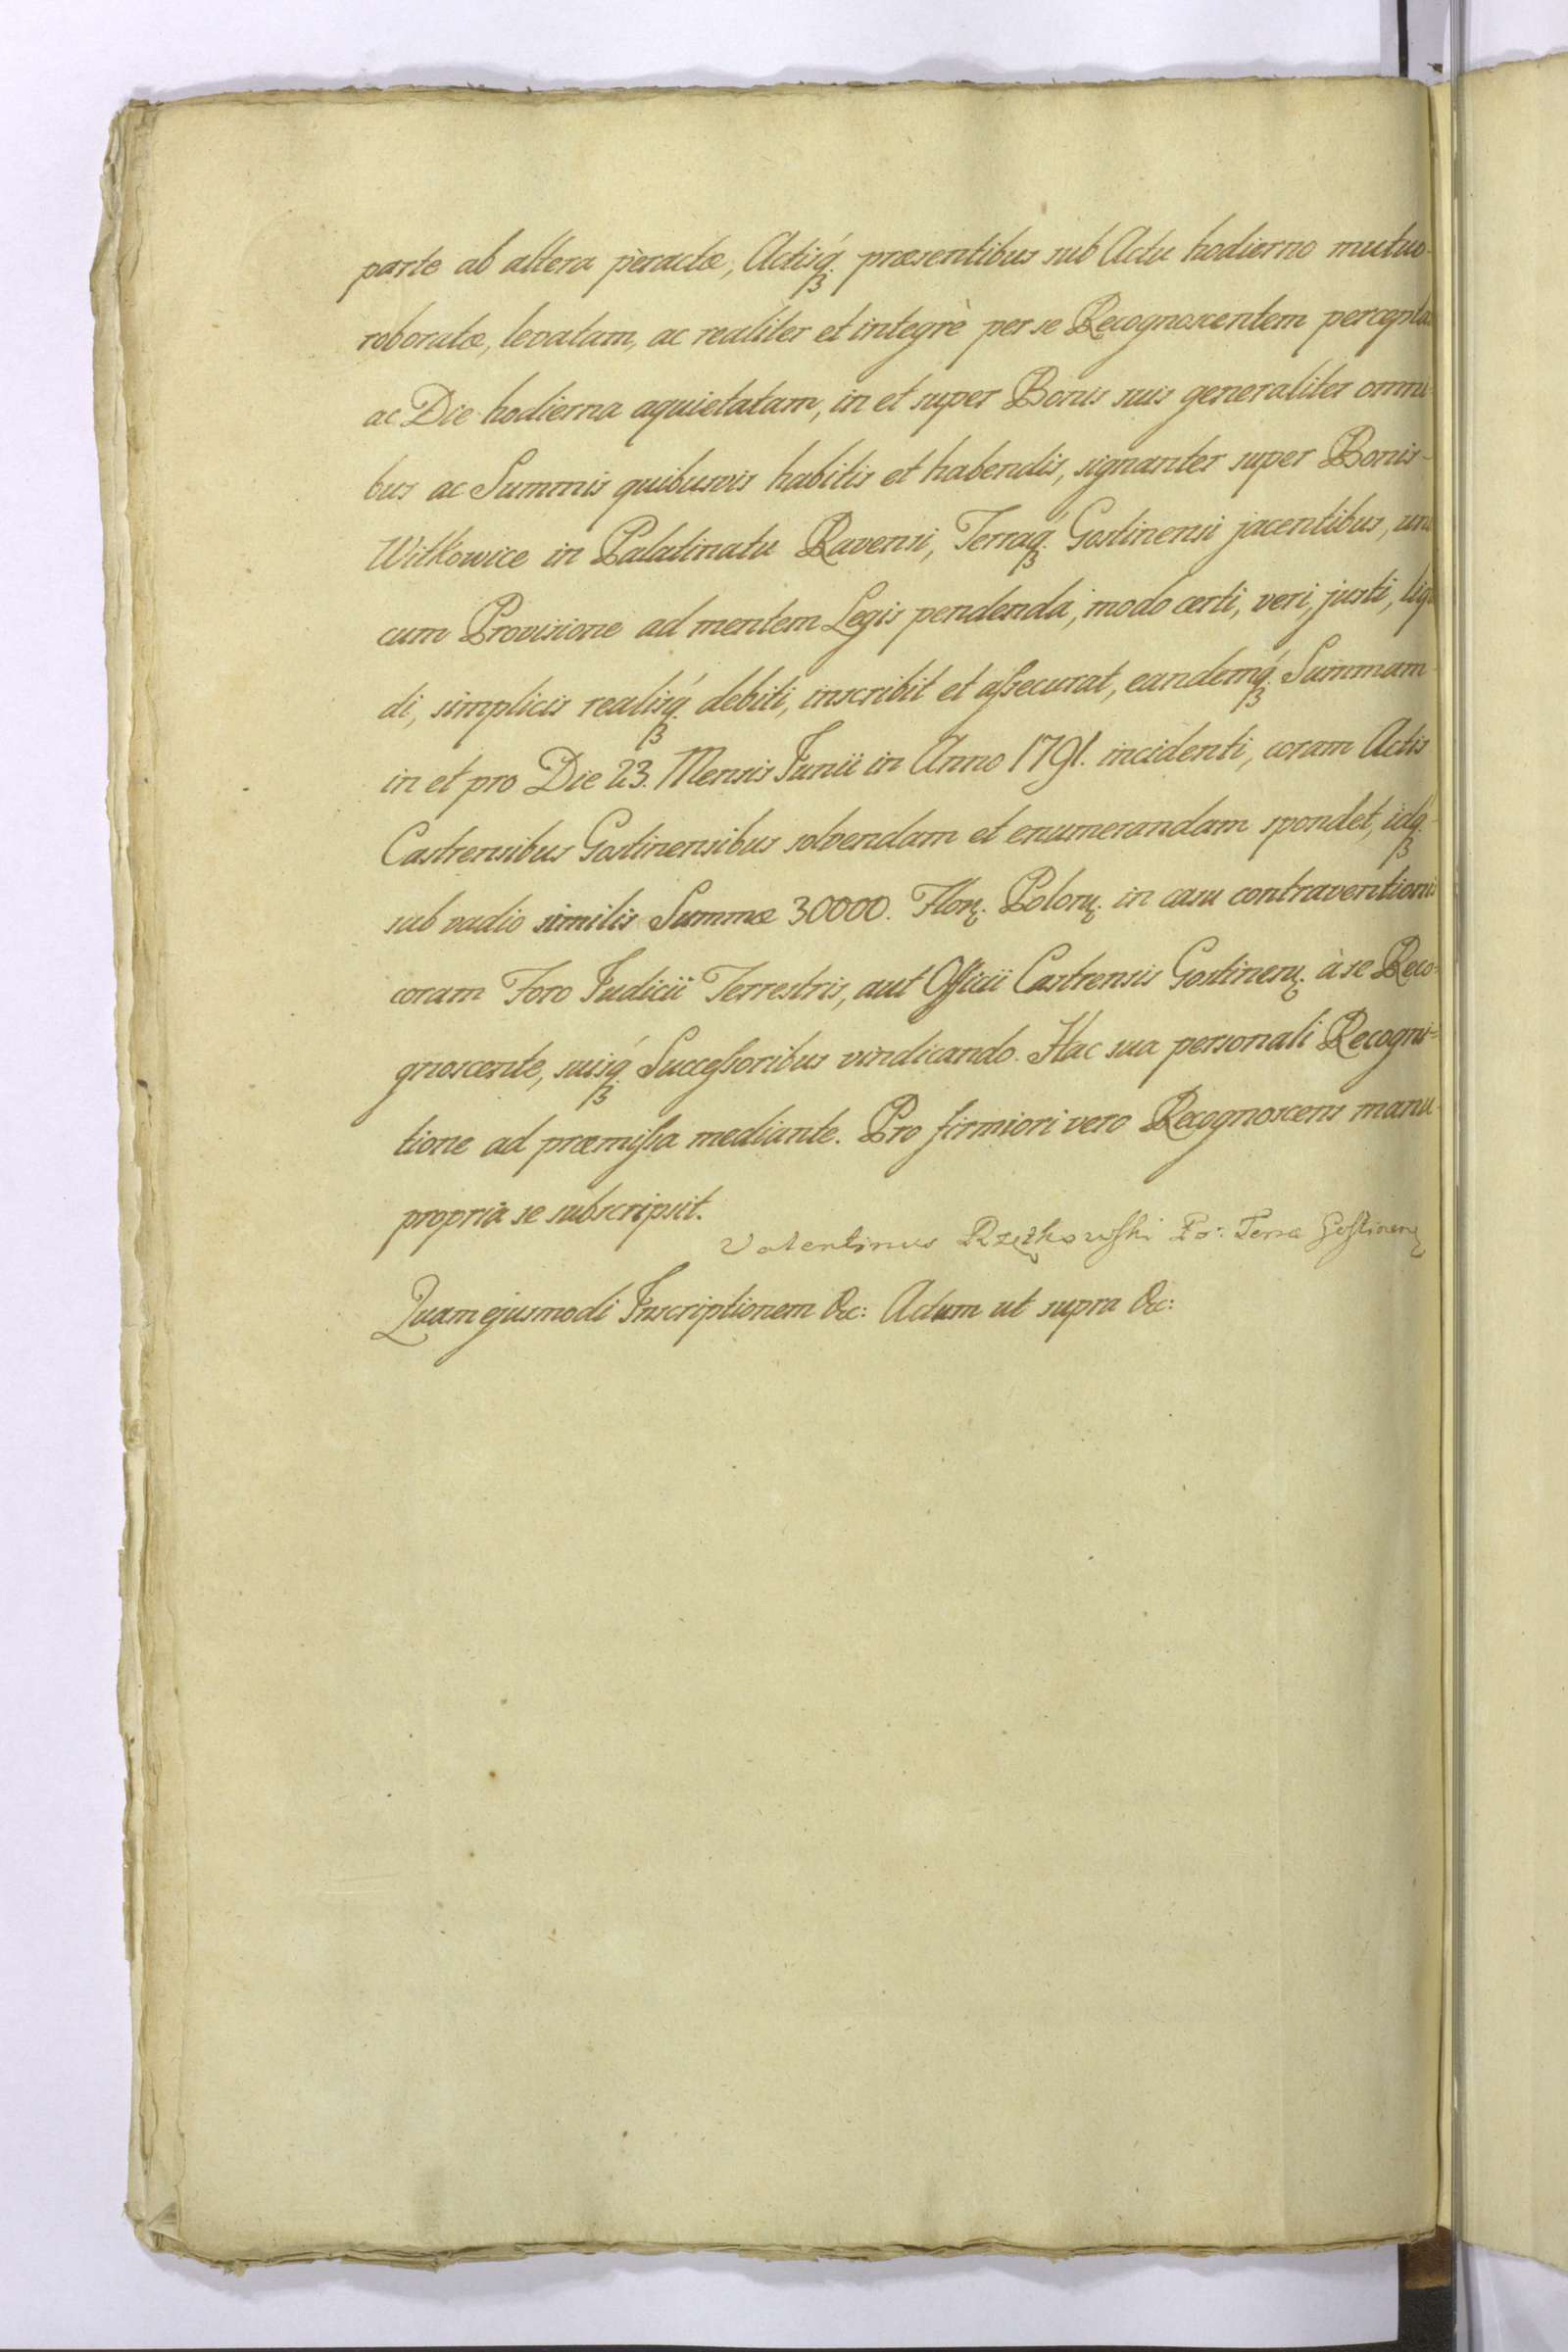 parte ab altera peractæ, Actisq́ꝫ præsentibus sub Actu hodierno mutuo-
roboratæ, levatam, ac realiter et integrè per se Recognoscentem perceptam
ac Die hodierna aquietatam, in et super Bonis suis generaliter omni-
bus ac Summis quibusvis habitis et habendis, signanter super Bonis-
Witkowice in Palatinatu Ravensi, Terraq́ꝫ Gostinensi jacentibus, una
cum Provisione ad mentem Legis pendenda, modo certi, veri, justi, liqui
di, simplicis realisq́ꝫ debiti, inscribit et aſsecurat, eandemq́ꝫ Summam-
in et pro Die 23. Mensis Junii in Anno 1791. incidenti, coram Actis
Castrensibus Gostinensibus solvendam et enumerandam spondet, idq́ꝫ-
sub vadio similis Summæ 30000. Floꝝ. Poloꝝ. in casu contraventionis
coram Foro Judicii Terrestris, aut Officii Castrensis Gostinenꝝ. à se Reco-
gnoscente, suisq́ꝫ Succeſsoribus vindicando. Hac sua personali Recogni=
tione ad præmiſsa mediante. Pro firmiori vero Recognoscens manu-
propria se subscripsit.
Valentinus Rzętkowſki Po: Terræ Goſtinenꝝ
Quam ejusmodi Inscriptionem &c: Actum ut supra &c: